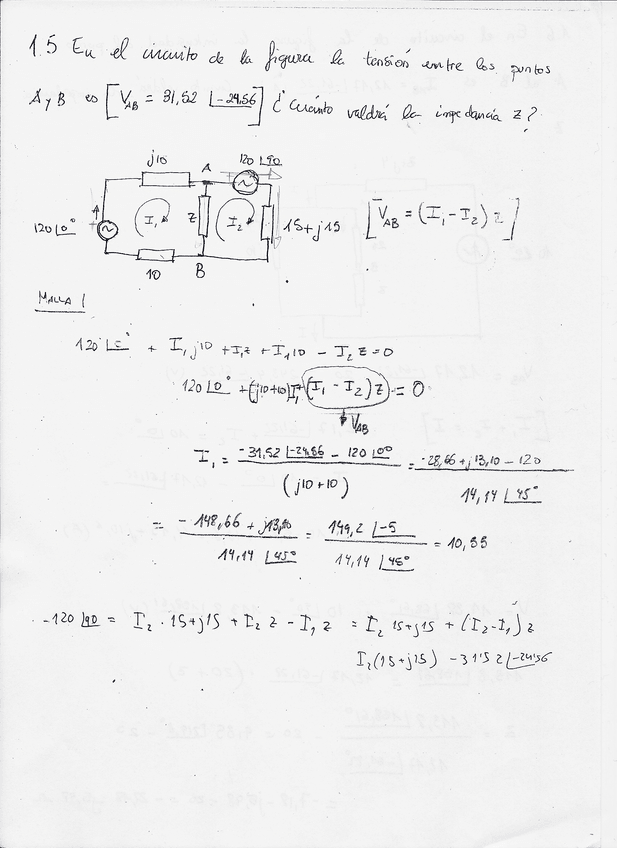 1.5 En el circuito de la figura la tensión entre los puntos
A y B es [V_AB = 31,52 ∠-24,56] ¿Cuánto valdrá la impedancia z?
j10
A
120 ∠90
120 ∠0°
I₁
z
I₂
15+j15
[V_AB = (I₁ - I₂) z]
10
B
MALLA 1
120 ∠0° + I₁ j10 + I₁z + I₁10 - I₂ z = 0
120 ∠0° + (j10+10)I₁ + (I₁ - I₂) z = 0
V_AB
I₁ = (-31,52 ∠-24,56 - 120 ∠0°) / (j10 + 10) = (-28,66 + j13,10 - 120) / (14,14 ∠45°)
= (-148,66 + j13,10) / (14,14 ∠45°) = (149,2 ∠-5) / (14,14 ∠45°) = 10,55
-120 ∠90 = I₂ · 15+j15 + I₂ z - I₁ z = I₂ 15+j15 + (I₂-I₁) z
I₂(15+j15) - 31'52 ∠-24'56